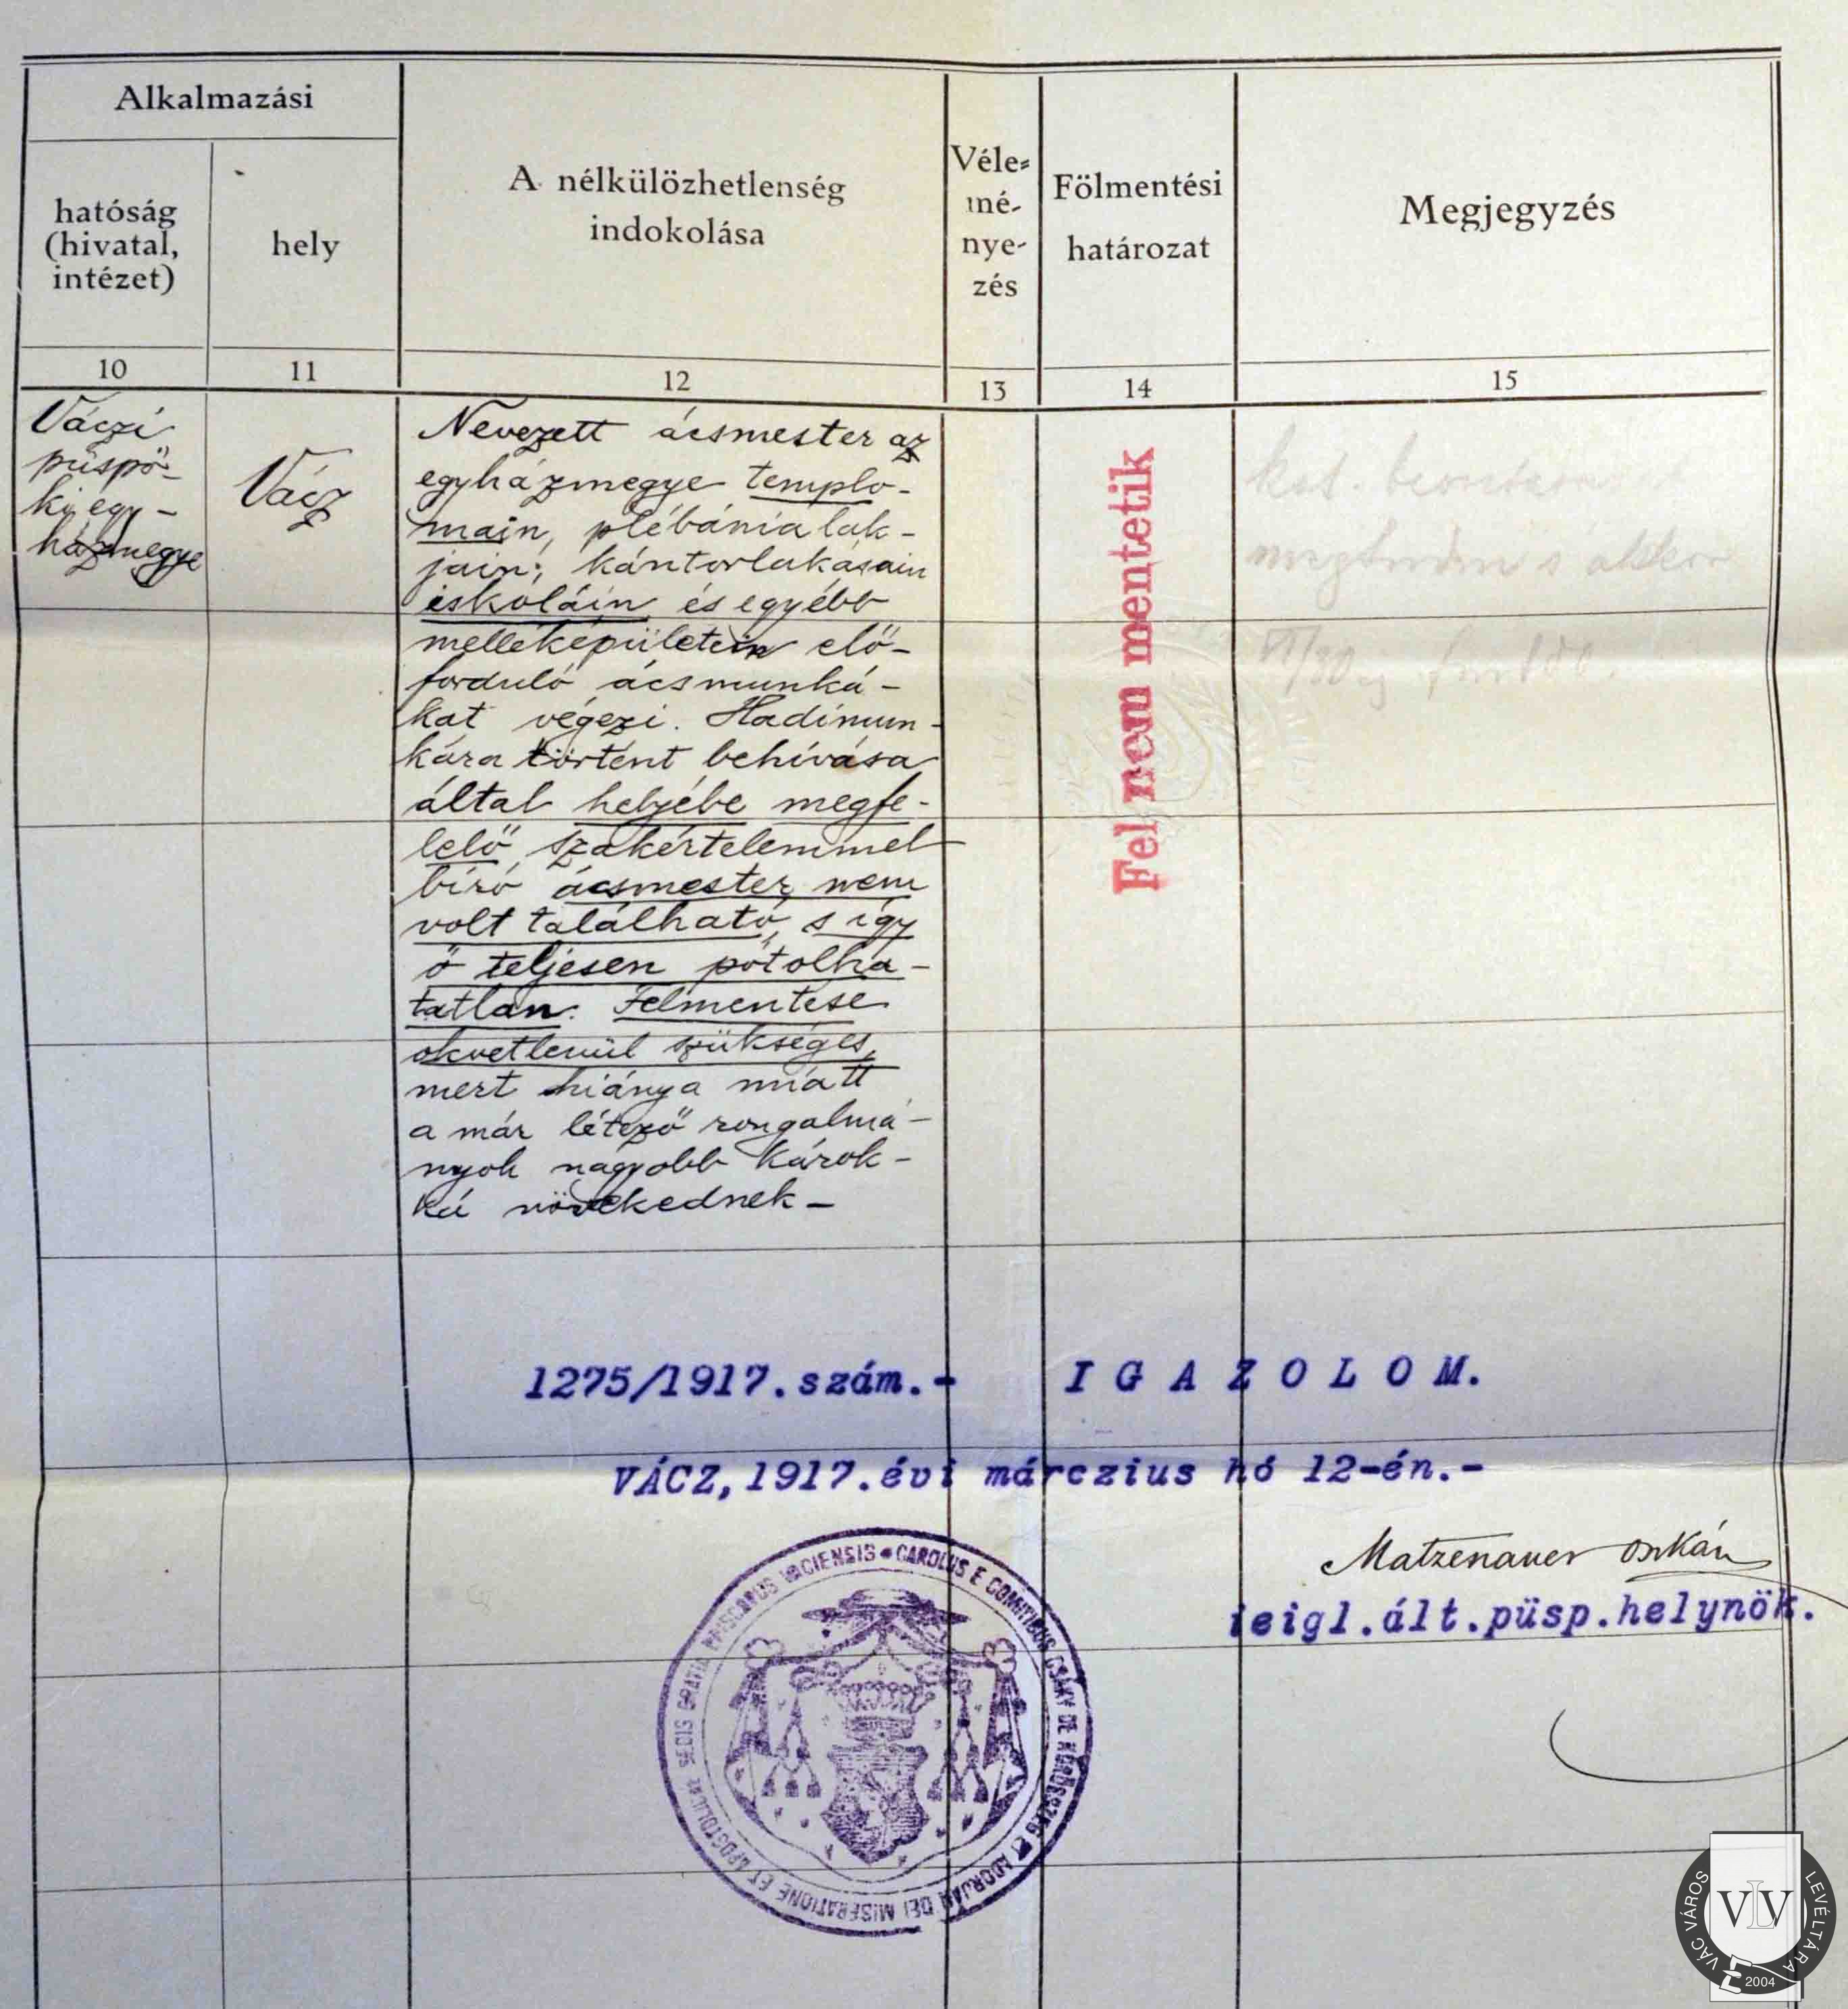 Alkalmazási
hatóság
(hivatal,
intézet)
hely
A nélkülözhetlenség
indokolása
Véle=
mé-
nye-
zés
Fölmentési
határozat
Megjegyzés
10
11
12
13
14
15
Váczi
püspö-
ki egy-
házmegye
Vácz
Nevezett ácsmester az
egyházmegye templo-
main, plébánia lak-
jain, kántorlakásain
iskoláin és egyébb
melléképületein elő-
forduló ácsmunká-
kat végezi. Hadimun-
kára történt behívása
által helyébe megfe-
lelő szakértelemmel
bíró ácsmester nem
volt található, s így
ő teljesen pótolha-
tatlan. Felmentése
okvetlenül szükséges,
mert hiánya miatt
a már létező rongalmá-
nyok nagyobb károk-
ká növekednek-
Fel nem mentetik
1275/1917.szám.- IGAZOLOM.
VÁCZ,1917.évi márczius hó 12-én.-
Matzenauer Oszkár
ieigl.ált.püsp.helynök.
CAROLUS E COMITIBUS CSÁKY DE KÖRÖSSZEG ET ADORJÁN DEI MISERATIONE ET APOSTOLICAE SEDIS GRATIA EPISCOPUS VACIENSIS
VÁC VÁROS LEVÉLTÁRA
VLV
2004